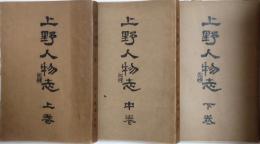 上野人物志
上巻
上野人物志
中巻
上野人物志
下巻